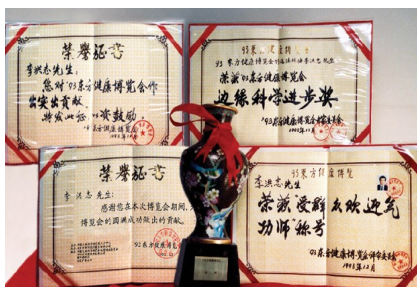 荣誉证书
李洪志先生:
您对'93东方健康博览会作
出突出贡献,
特发此证以资鼓励
'93东方健康博览会
1993年12月
93东方健康博览会
荣获'93东方健康博览会
边缘科学进步奖
'93东方健康博览会评审委员会
1993年12月
荣誉证书
李洪志先生:
感谢您在本次博览会期间,
博览会的圆满成功做出的贡献。
93东方健康博览
93东方健康博览
李洪志先生
荣获受群众欢迎气
功师称号
93东方健康博览会评审委员会
1993年12月